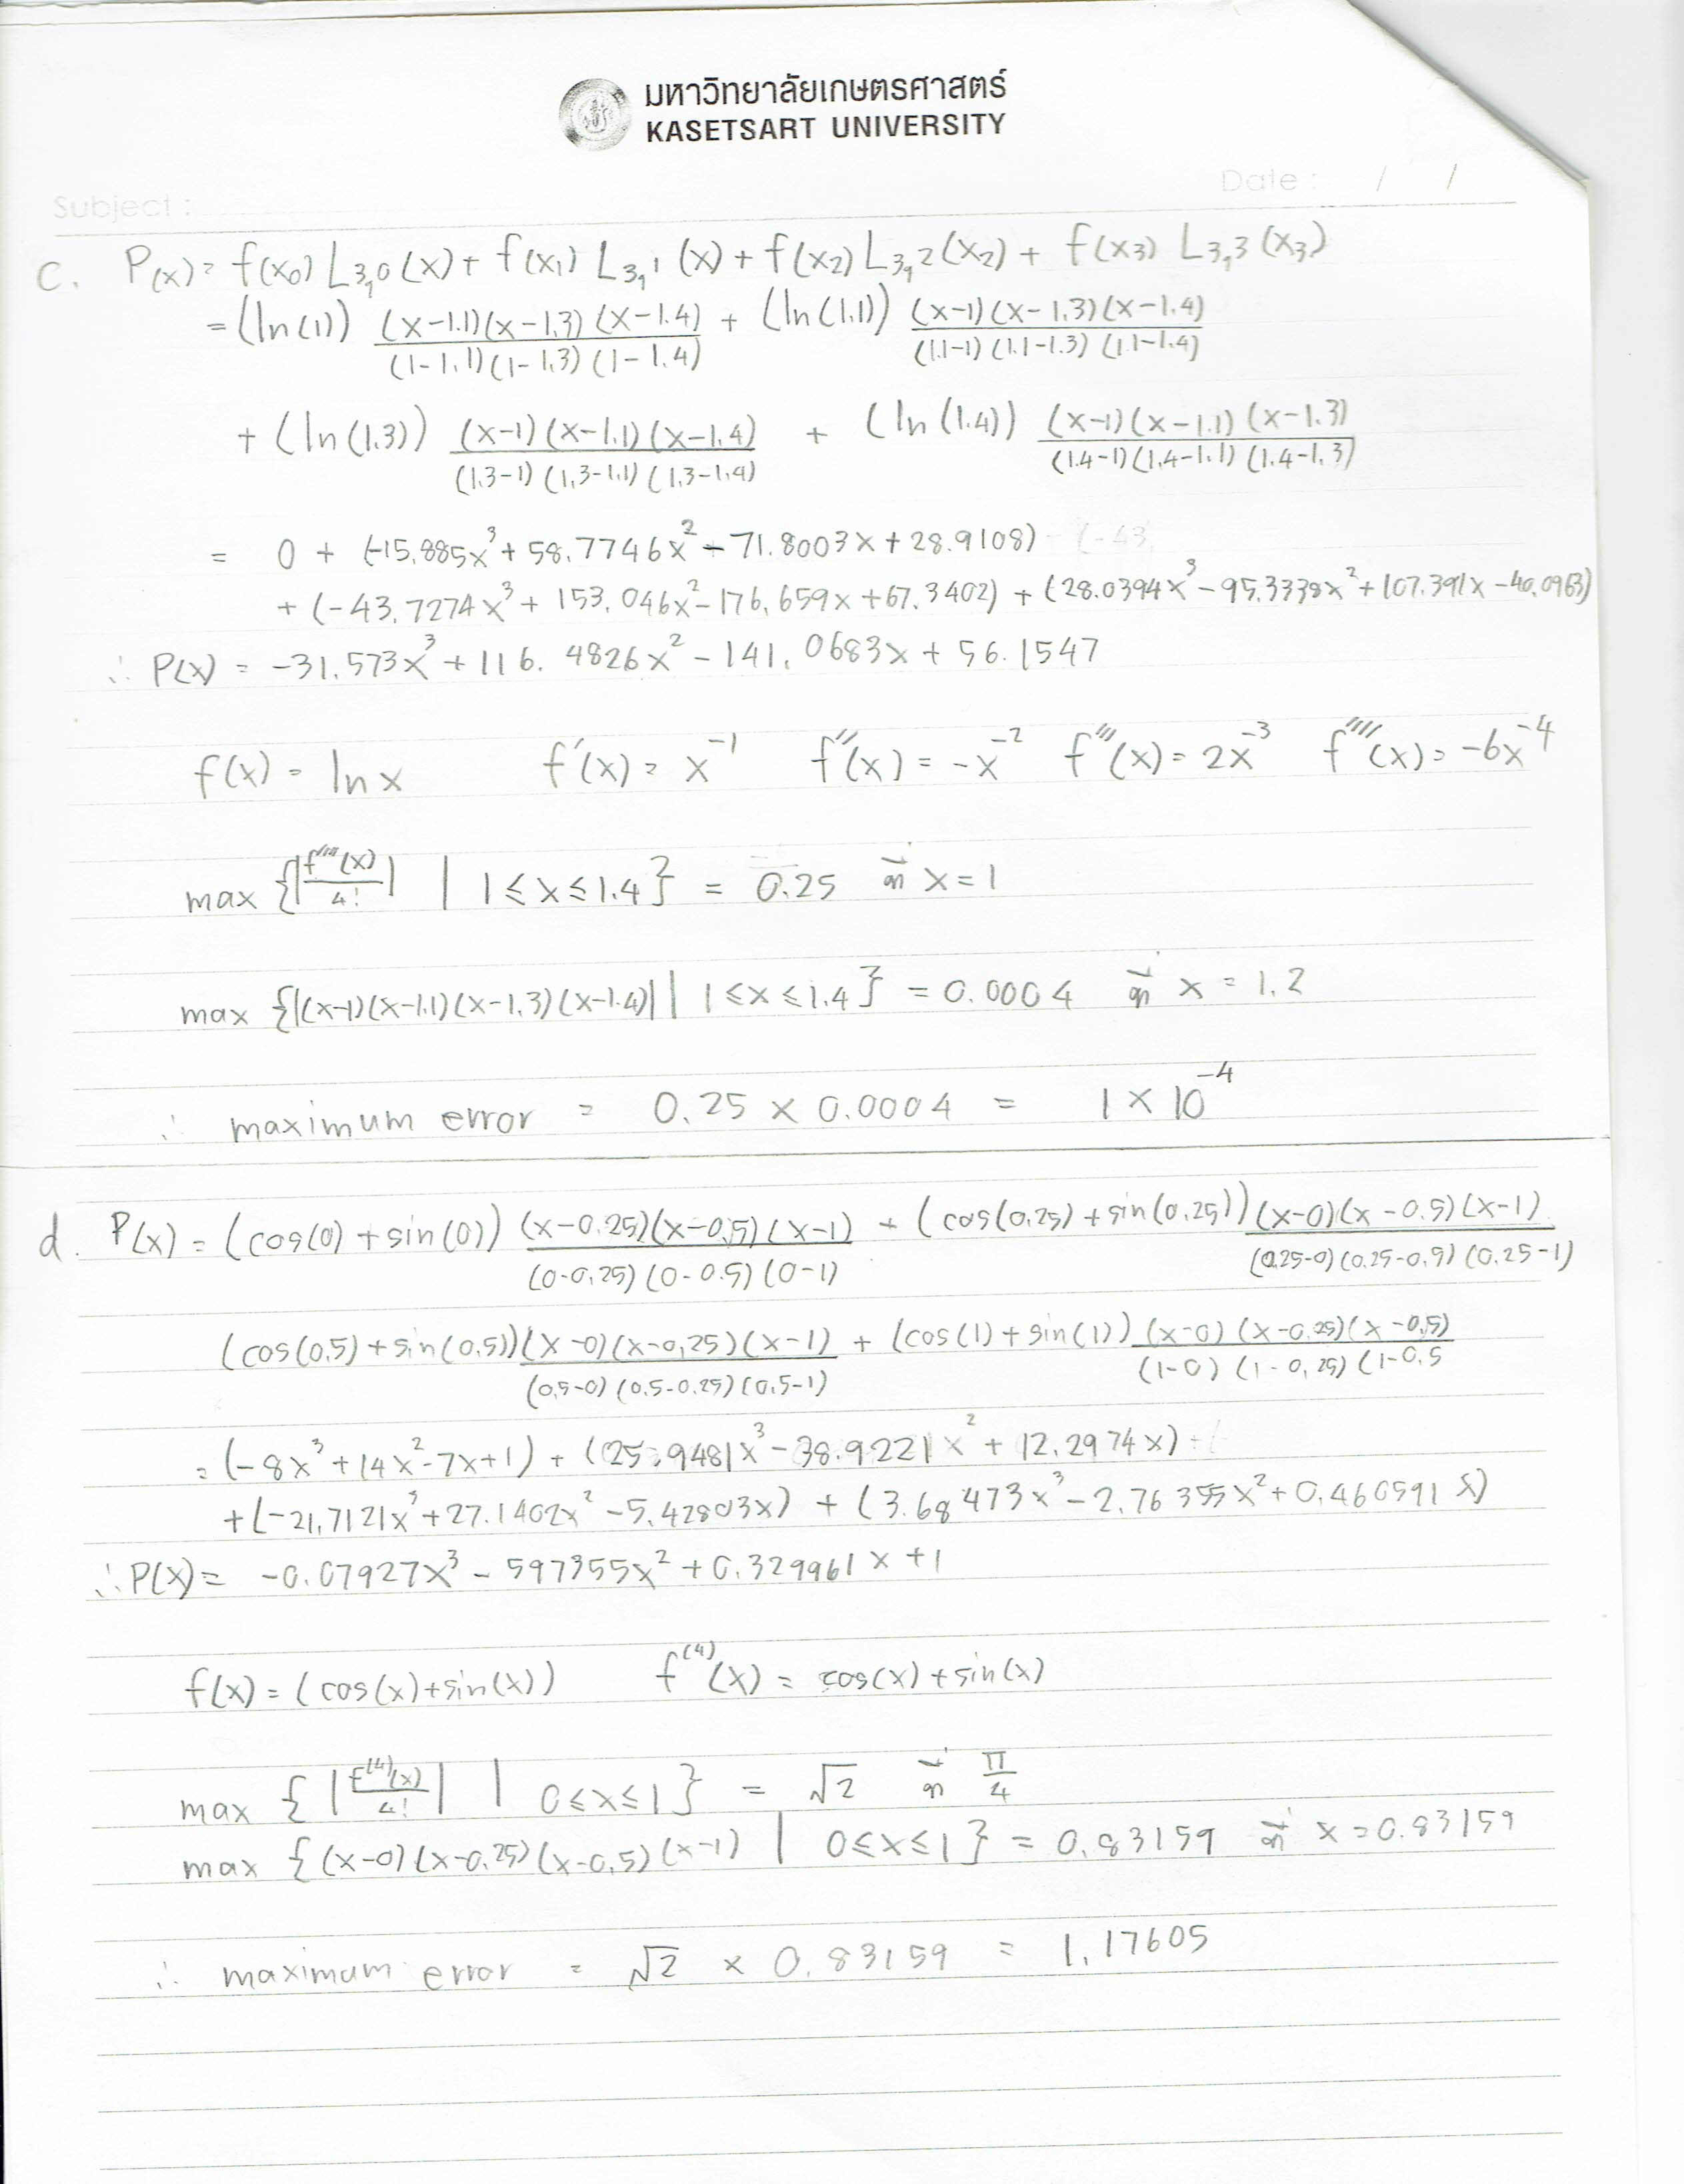 มหาวิทยาลัยเกษตรศาสตร์
KASETSART UNIVERSITY
Date : / /
Subject :
C. P(x) = f(x0) L3,0 (x) + f(x1) L3,1 (x) + f(x2) L3,2 (x2) + f(x3) L3,3 (x3)
= (ln(1)) (x-1.1)(x-1.3)(x-1.4) / (1-1.1)(1-1.3)(1-1.4) + (ln(1.1)) (x-1)(x-1.3)(x-1.4) / (1.1-1)(1.1-1.3)(1.1-1.4)
+ (ln(1.3)) (x-1)(x-1.1)(x-1.4) / (1.3-1)(1.3-1.1)(1.3-1.4) + (ln(1.4)) (x-1)(x-1.1)(x-1.3) / (1.4-1)(1.4-1.1)(1.4-1.3)
= 0 + (-15.885x³ + 58.7746x² - 71.8003x + 28.9108)
+ (-43.7274x³ + 153.046x² - 176.659x + 67.3402) + (28.0394x³ - 95.3338x² + 107.391x - 40.0963)
∴ P(x) = -31.573x³ + 116.4826x² - 141.0683x + 56.1547
f(x) = ln x f′(x) = x⁻¹ f″(x) = -x⁻² f‴(x) = 2x⁻³ f⁗(x) = -6x⁻⁴
max {|f⁗(x)/4!| | 1 ≤ x ≤ 1.4} = 0.25 ที่ x = 1
max {|(x-1)(x-1.1)(x-1.3)(x-1.4)| | 1 ≤ x ≤ 1.4} = 0.0004 ที่ x = 1.2
∴ maximum error = 0.25 × 0.0004 = 1 × 10⁻⁴
d. P(x) = (cos(0) + sin(0)) (x-0.25)(x-0.5)(x-1) / (0-0.25)(0-0.5)(0-1) + (cos(0.25) + sin(0.25)) (x-0)(x-0.5)(x-1) / (0.25-0)(0.25-0.5)(0.25-1)
(cos(0.5) + sin(0.5)) (x-0)(x-0.25)(x-1) / (0.5-0)(0.5-0.25)(0.5-1) + (cos(1) + sin(1)) (x-0)(x-0.25)(x-0.5) / (1-0)(1-0.25)(1-0.5
= (-8x³ + 14x² - 7x + 1) + (25.9481x³ - 38.9221x² + 12.2974x)
+ (-21.7121x³ + 27.1402x² - 5.42803x) + (3.68473x³ - 2.76355x² + 0.460591x)
∴ P(x) = -0.07927x³ - 597355x² + 0.329961x + 1
f(x) = (cos(x) + sin(x)) f⁽⁴⁾(x) = cos(x) + sin(x)
max {|f⁽⁴⁾(x)/4!| | 0 ≤ x ≤ 1} = √2 ที่ π/4
max {(x-0)(x-0.25)(x-0.5)(x-1) | 0 ≤ x ≤ 1} = 0.83159 ที่ x = 0.83159
∴ maximum error = √2 × 0.83159 = 1.17605